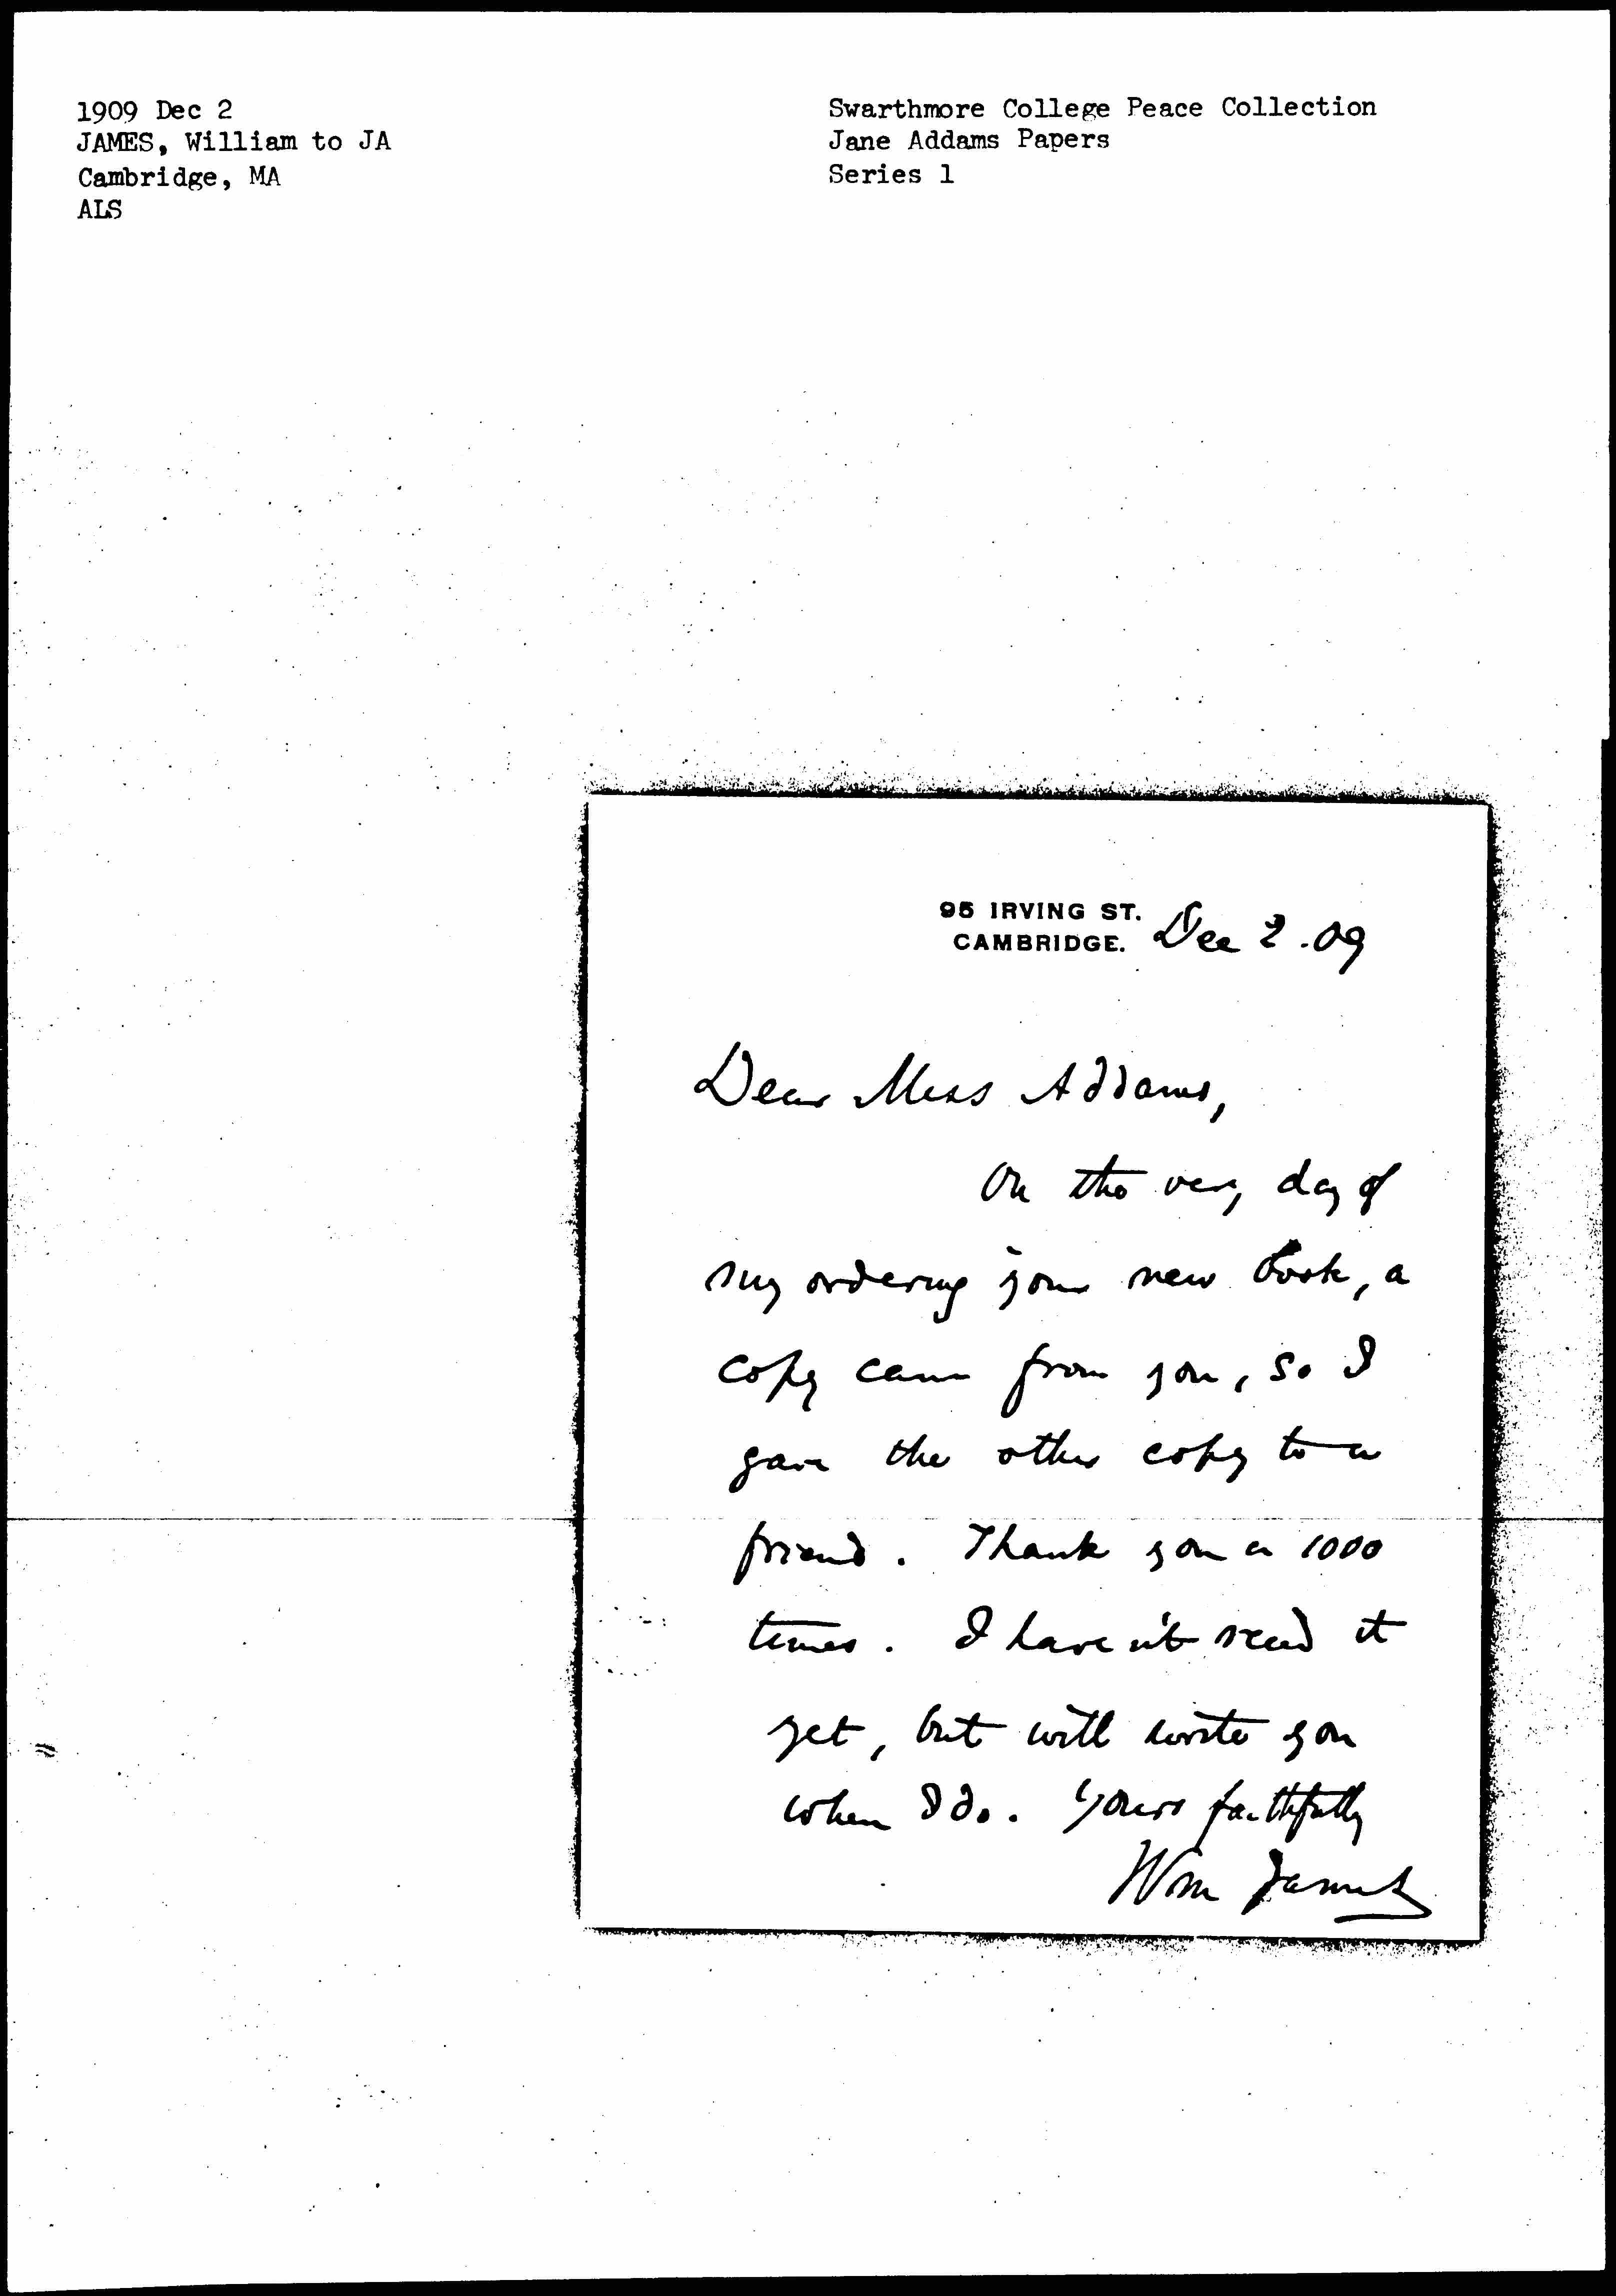 1909 Dec 2
JAMES, William to JA
Cambridge, MA
ALS
Swarthmore College Peace Collection
Jane Addams Papers
Series 1
95 IRVING ST.
CAMBRIDGE. Dec 2. 09
Dear Miss Addams,
On the very day of
my ordering your new book, a
copy came from you, so I
gave the other copy to a
friend. Thank you a 1000
times. I haven't read it
yet, but will write you
when I do. Yours faithfully
Wm James